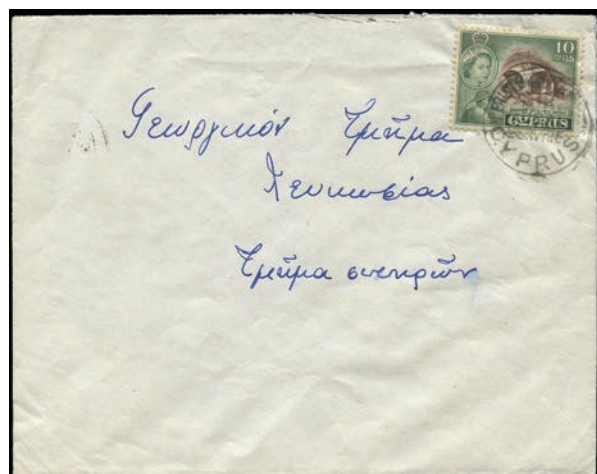 10
MILS
CYPRUS
CYPRUS
Γεωργικόν Τμῆμα
Λευκωσίας
Τμῆμα